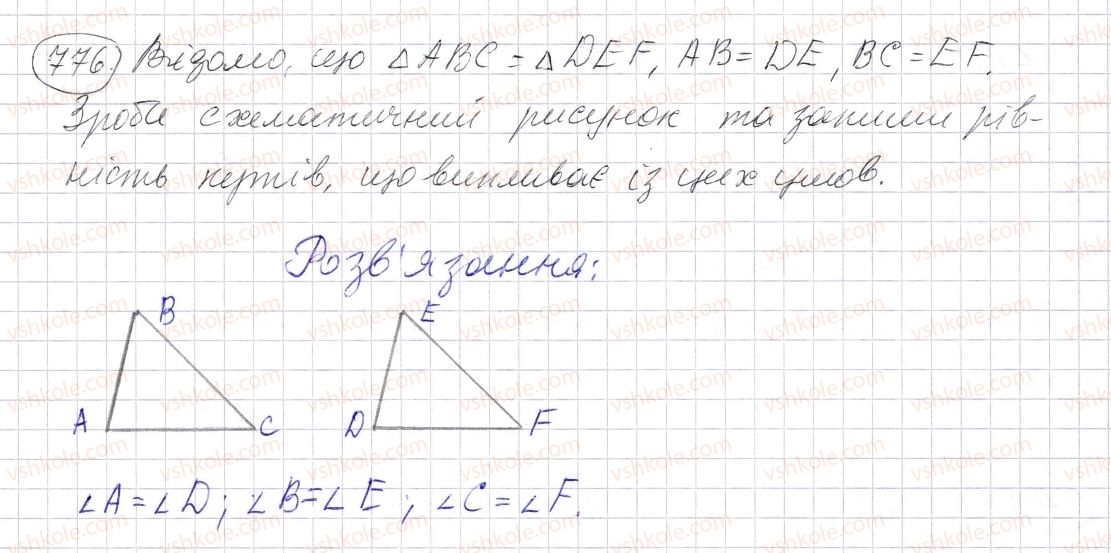 776. Відомо, що △ABC = △DEF, AB = DE, BC = EF.
Зроби схематичний рисунок та запиши рів-
ність кутів, що випливає із цих умов.
Розв'язання:
B E
A C D F
∠A = ∠D; ∠B = ∠E; ∠C = ∠F.
vshkole.com